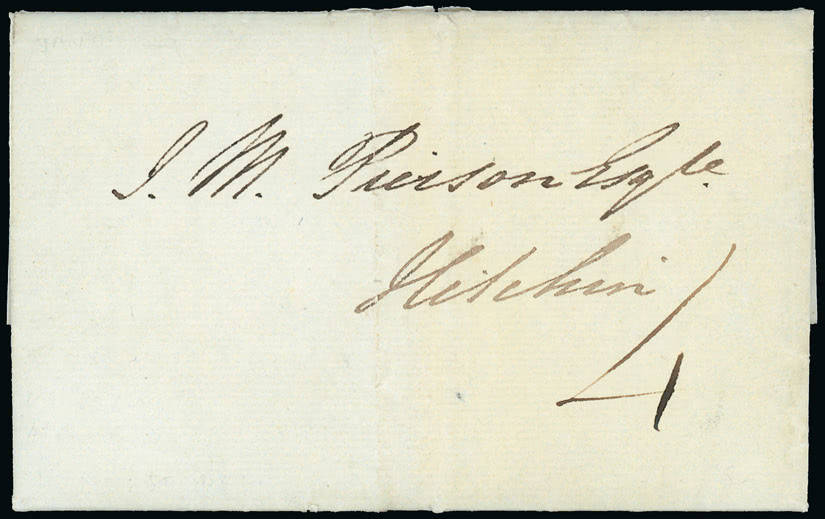 J. M. Pierson Esqre.
Hitchin
4